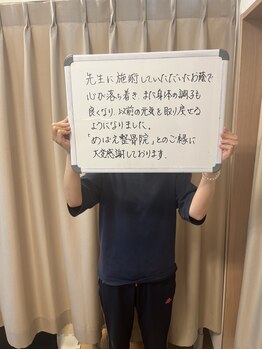 先生に施術していただいたお蔭で
心が落ち着き、また身体の調子も
良くなり、以前の元気を取り戻せる
ようになりました。
「めばえ整骨院」とのご縁に
大変感謝しております。